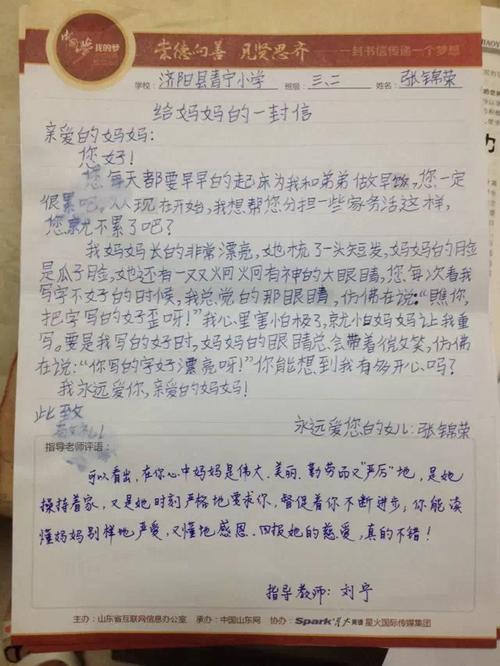 中国梦 我的梦
崇德向善 见贤思齐
一封书信传递一个梦想
学校：济阳县青宁小学 班级：三、二 姓名：张锦荣
给妈妈的一封信
亲爱的妈妈：
您好！
您每天都要早早的起床为我和弟弟做早饭，您一定
很累吧。从现在开始，我想帮您分担一些家务活这样，
您就不累了吧？
我妈妈长的非常漂亮，她梳了一头短发，妈妈的脸
是瓜子脸，她还有一双炯炯有神的大眼睛，您每次看我
写字不好的时候，我总觉的那眼睛，仿佛在说：“瞧你，
把字写的好歪呀！”我心里害怕极了，就怕妈妈让我重
写。要是我写的好时，妈妈的眼睛总会带着微笑，仿佛
在说：“你写的字好漂亮呀！”你能想到我有多开心吗？
我永远爱你，亲爱的妈妈！
此致
敬礼！
永远爱您的女儿：张锦荣
指导老师评语：
可以看出，在你心中妈妈是伟大、美丽、勤劳而又“严厉”地，是她
操持着家，又是她时刻严格地要求你，督促着你不断进步，你能读
懂妈妈别样地严爱，又懂地感恩、回报她的慈爱，真的不错！
指导教师：刘宁
主办：山东省互联网信息办公室 承办：中国山东网 协办：Spark 星火英语 星火国际传媒集团